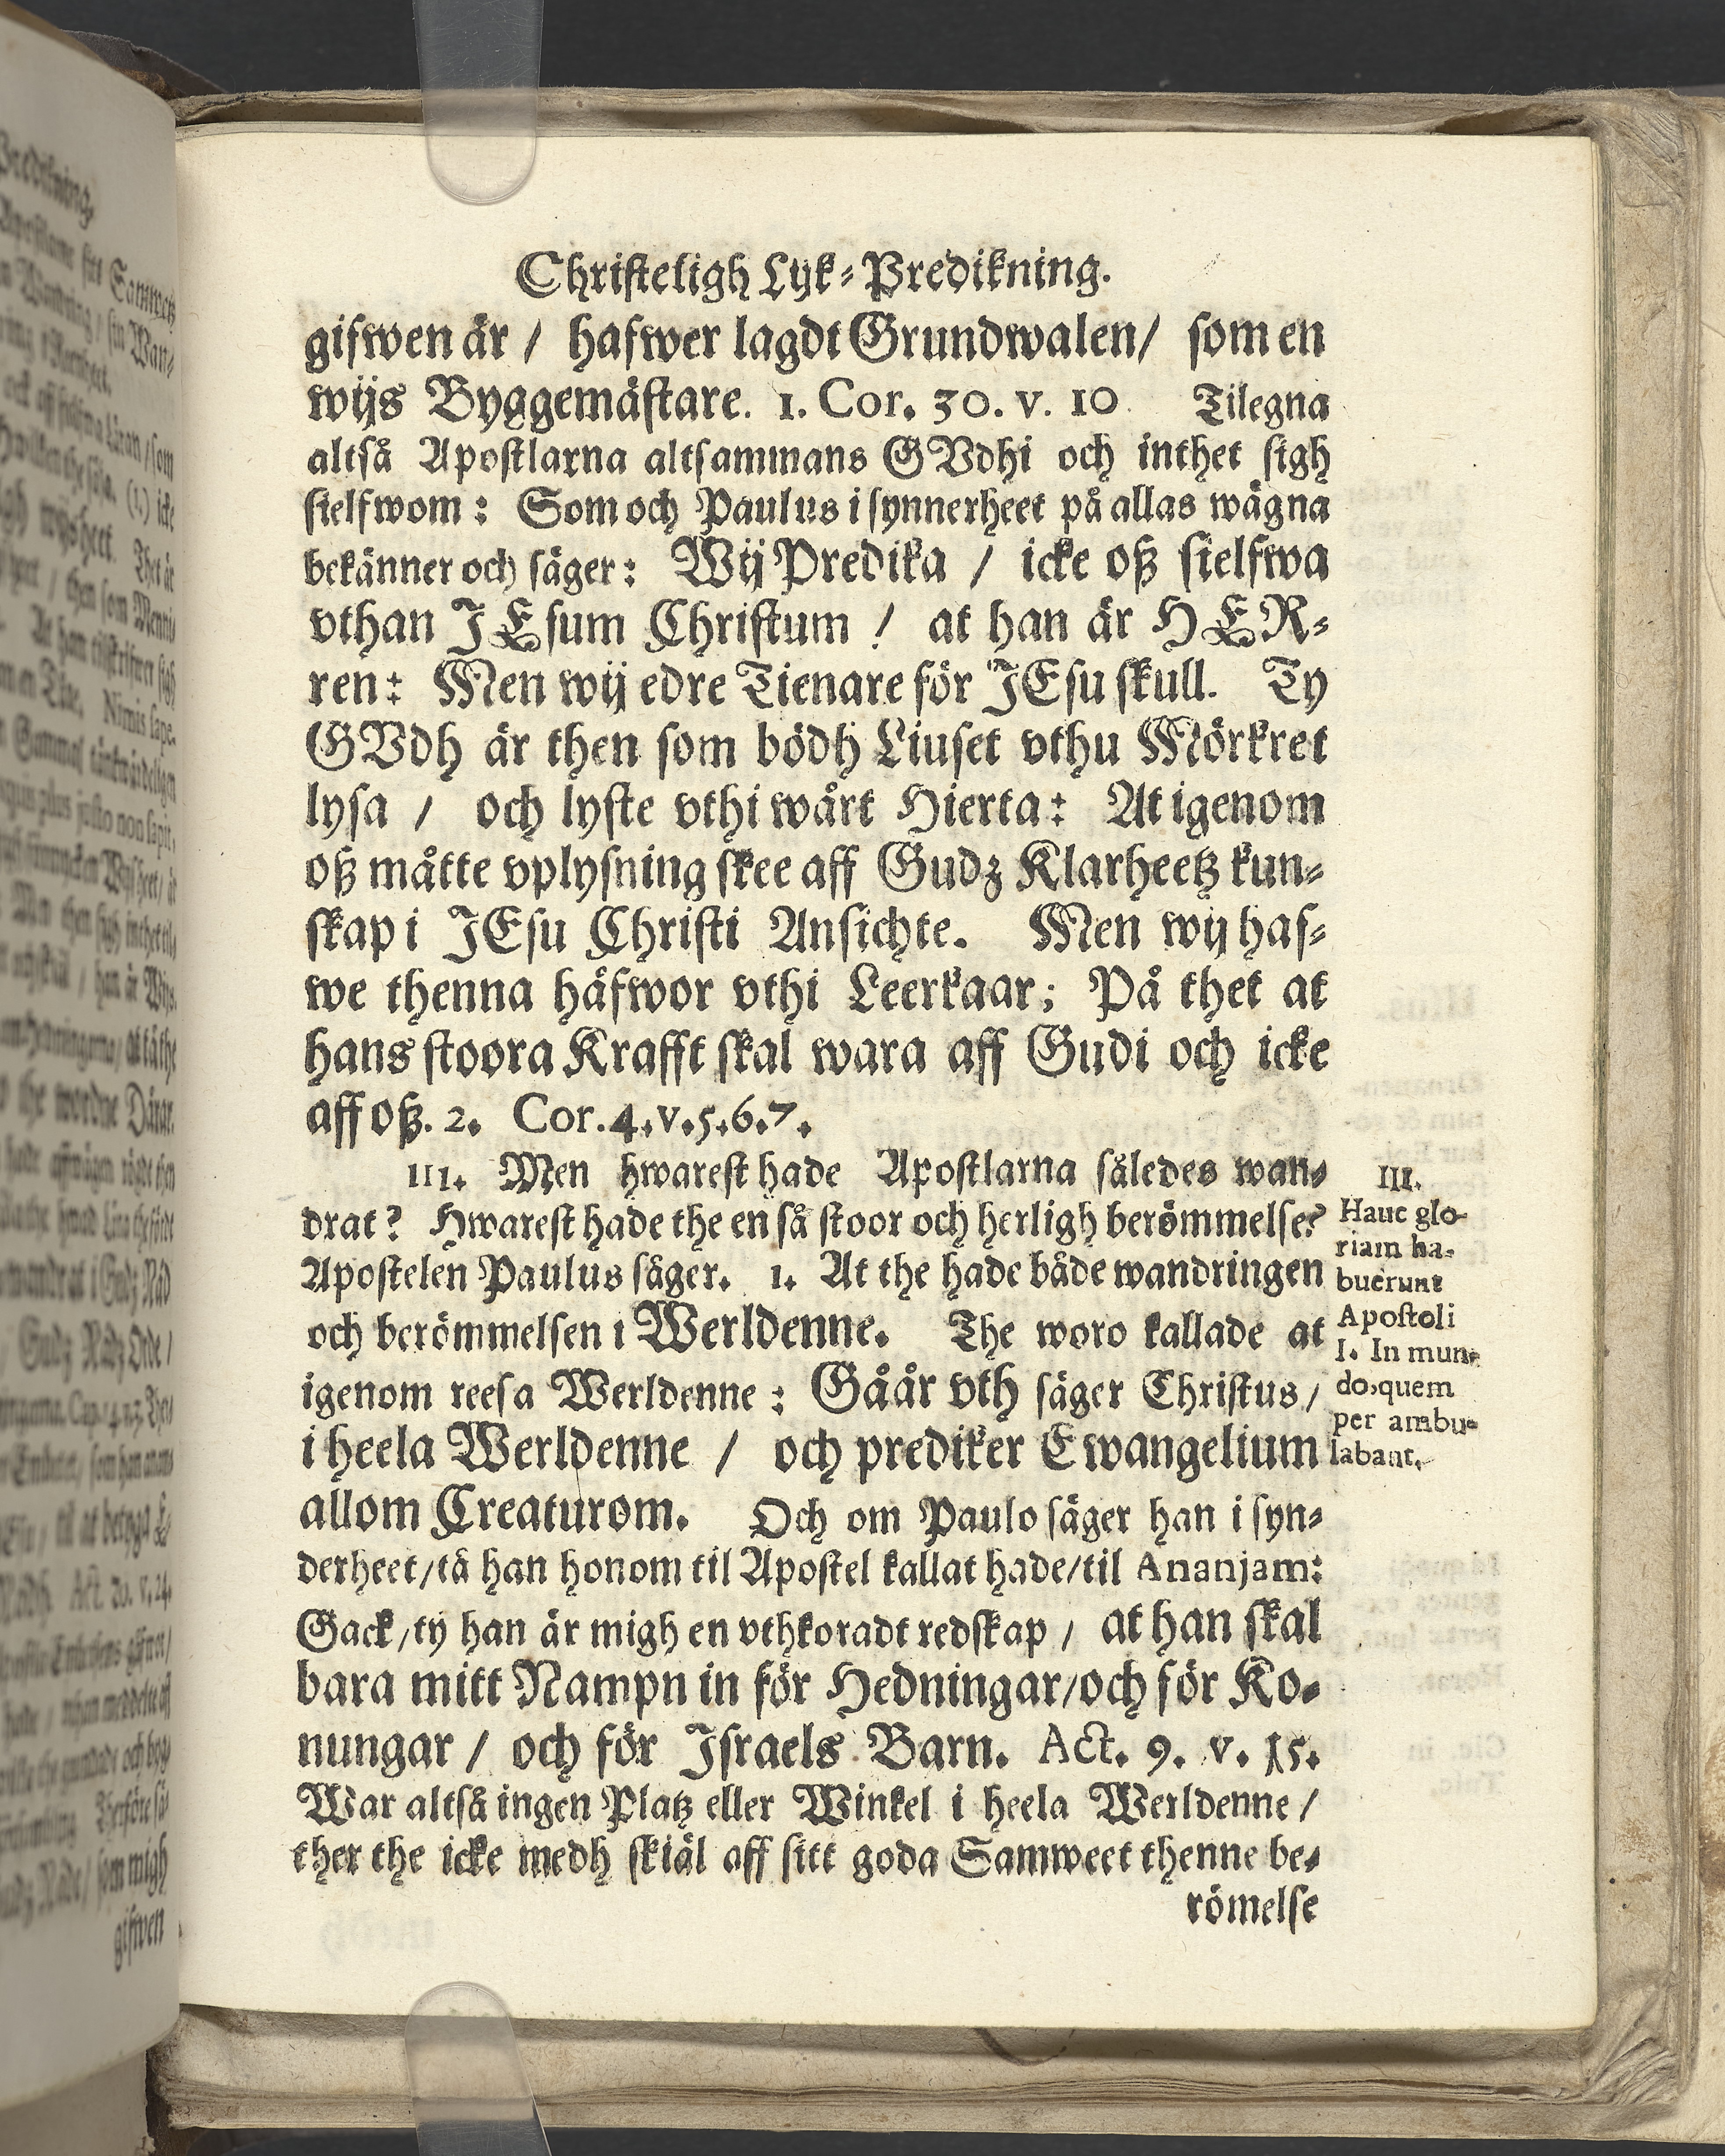 Christeligh Lyk-Predikning.
gifwen är / hafwer lagdt Grundwalen / som en
wijs Byggemästare. 1. Cor. 30. v. 10. Tilegna
altså Apostlarna altsammans GVdhi och inthet sigh
sielfwom: Som och Paulus i synnerheet på allas wägna
bekänner och säger: Wij Predika / icke oß sielfwa
vthan JEsum Christum / at han är HER-
ren: Men wij edre Tienare för JEsu skull. Ty
GVdh är then som bödh Liuset vthu Mörkret
lysa / och lyste vthi wårt Hierta: At igenom
oß måtte vplysning skee aff Gudz Klarheetz kun-
skap i JEsu Christi Ansichte. Men wij haf-
we thenna häfwor vthi Leerkaar; På thet at
hans stoora Krafft skal wara aff Gudi och icke
aff oß. 2. Cor. 4. v. 5. 6. 7.
III. Men hwarest hade Apostlarna således wan-
drat? Hwarest hade the en så stoor och herligh berömmelse?
Apostelen Paulus säger. 1. At the hade både wandringen
och berömmelsen i Werldenne. The woro kallade at
igenom reesa Werldenne: Gåår vth säger Christus /
i heela Werldenne / och prediker Ewangelium
allom Creaturom. Och om Paulo säger han i syn-
derheet / tå han honom til Apostel kallat hade / til Ananjam:
Gack / ty han är migh en vthkoradt redskap / at han skal
bara mitt Nampn in för Hedningar / och för Ko-
nungar / och för Israels Barn. Act. 9. v. 15.
War altså ingen Platz eller Winkel i heela Werldenne /
ther the icke medh skiäl aff sitt goda Samweet thenne be-
römelse
III.
Hauc glo-
riam ha-
buerunt
Apostoli
I. In mun-
do, quem
per ambu-
labant.